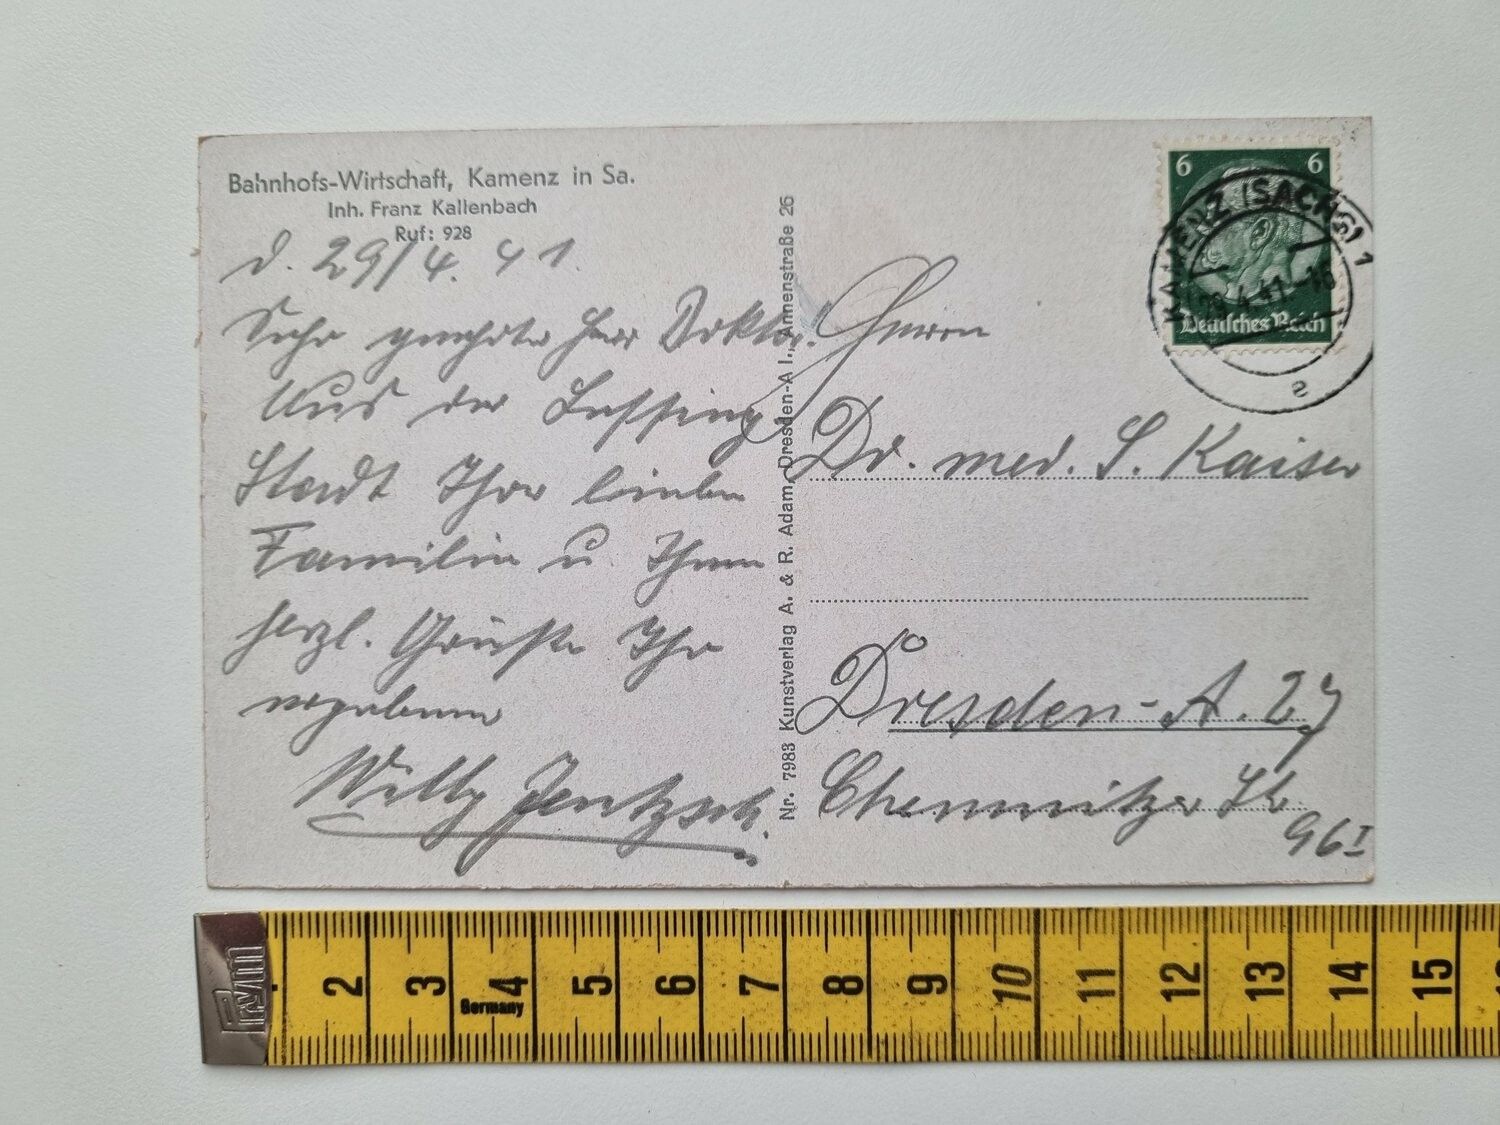 Bahnhofs-Wirtschaft, Kamenz in Sa.
Inh. Franz Kallenbach
Ruf: 928
d. 29/4. 41.
Sehr geehrter Herr Doktor!
Aus der Lessing
Stadt Ihrer lieben
Familie u. Ihnen
herzl. Grüße Ihr
ergebener
Willy Jentzsch.
Nr. 7983 Kunstverlag A. & R. Adam, Dresden-A 1, Annenstraße 26
6 6
Deutsches Reich
KAMENZ (SACHS) 1
29.4.41.-16
a
Herrn
Dr. med. S. Kaiser
Dresden-A. 27
Chemnitzer Str
96 I
Prym
2 3 4 5 6 7 8 9 10 11 12 13 14 15
Germany